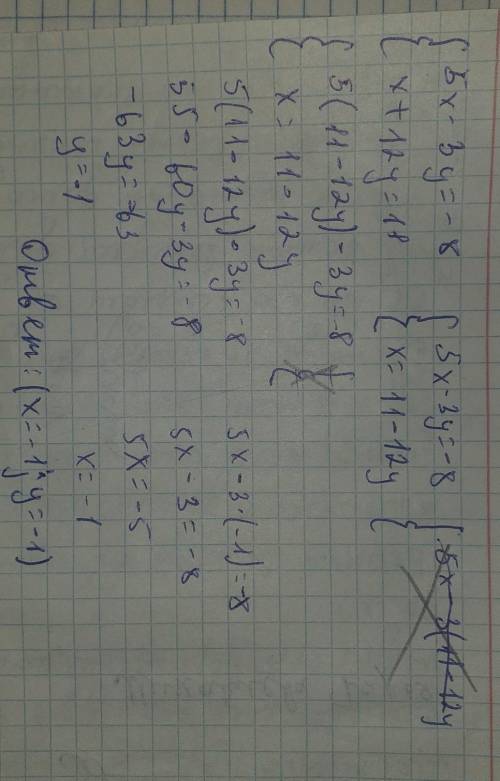 { 5x - 3y = -8 { 5x - 3y = -8 { 5x - 3(11 - 12y
{ x + 12y = 11 { x = 11 - 12y {
{ 5(11 - 12y) - 3y = -8 {
{ x = 11 - 12y {
5(11 - 12y) - 3y = -8
55 - 60y - 3y = -8
-63y = -63
y = -1
5x - 3·(-1) = -8
5x - 3 = -8
5x = -5
x = -1
Ответ: (x = -1; y = -1)